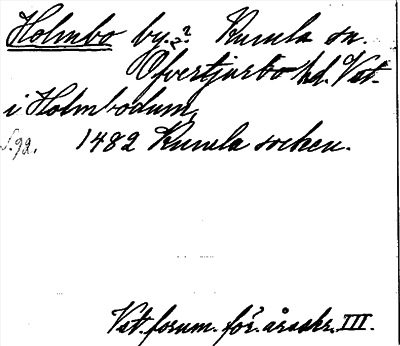 Holmbo by.? Kumla sn.
Öfvertjurbo hd. Vst.
i Holmbodum,
S. 92. 1482 Kumla socken.
Vst. forum. för. årsskr. III.